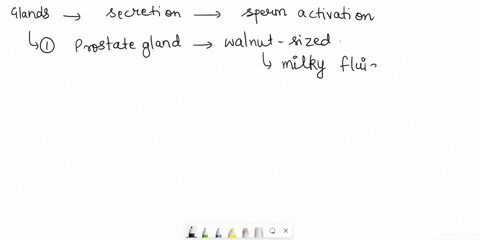 Glands → secretion → sperm activation
↳ ① Prostate gland → walnut-sized.
↳ milky flui